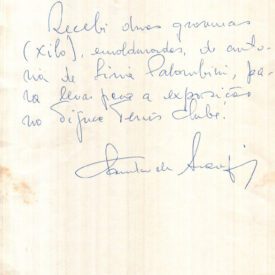 Recebi duas gravuras
(xilo), emolduradas, de auto-
ria de Livia Palombini, pa-
ra levar para a exposição
no Tijuca Tenis Clube.